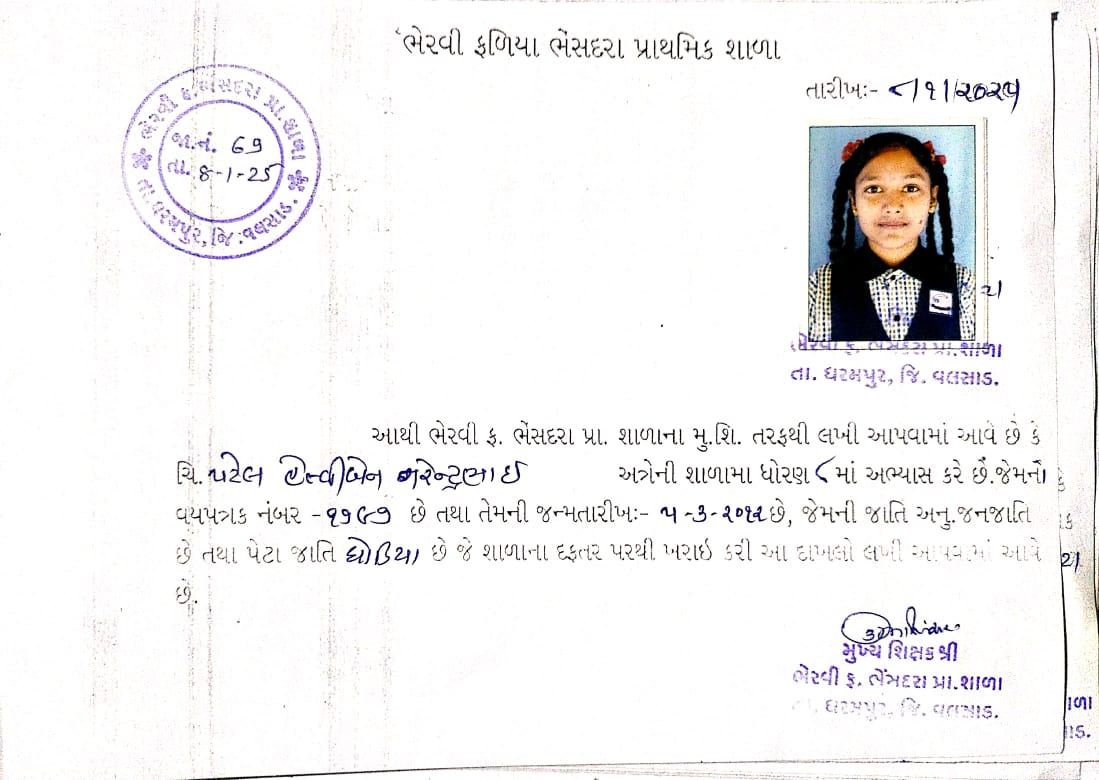 ભેરવી ફળિયા ભેંસદરા પ્રાથમિક શાળા
તારીખઃ- ૮/૧/૨૦૨૫
ભેરવી ફ. ભેંસદરા પ્રા. શાળા
જા.નં. 69
તા. 8-1-25
તા. ધરમપુર, જિ. વલસાડ.
ભેરવી ફ. ભેંસદરા પ્રા.શાળા
તા. ધરમપુર, જિ. વલસાડ.
આથી ભેરવી ફ. ભેંસદરા પ્રા. શાળાના મુ.શિ. તરફથી લખી આપવામાં આવે છે કે
ચિ. પટેલ નરેન્દ્રભાઈ અત્રેની શાળામા ધોરણ ૮ માં અભ્યાસ કરે છે.જેમનો
વયપત્રક નંબર - છે તથા તેમની જન્મતારીખઃ- ૫-૩-૨૦૧૨ છે, જેમની જાતિ અનુ.જનજાતિ
છે તથા પેટા જાતિ ધોડિયા છે જે શાળાના દફતર પરથી ખરાઇ કરી આ દાખલો લખી આપવામાં આવે
છે.
મુખ્ય શિક્ષક શ્રી
ભેરવી ફ. ભેંસદરા પ્રા.શાળા
તા. ધરમપુર, જિ. વલસાડ.